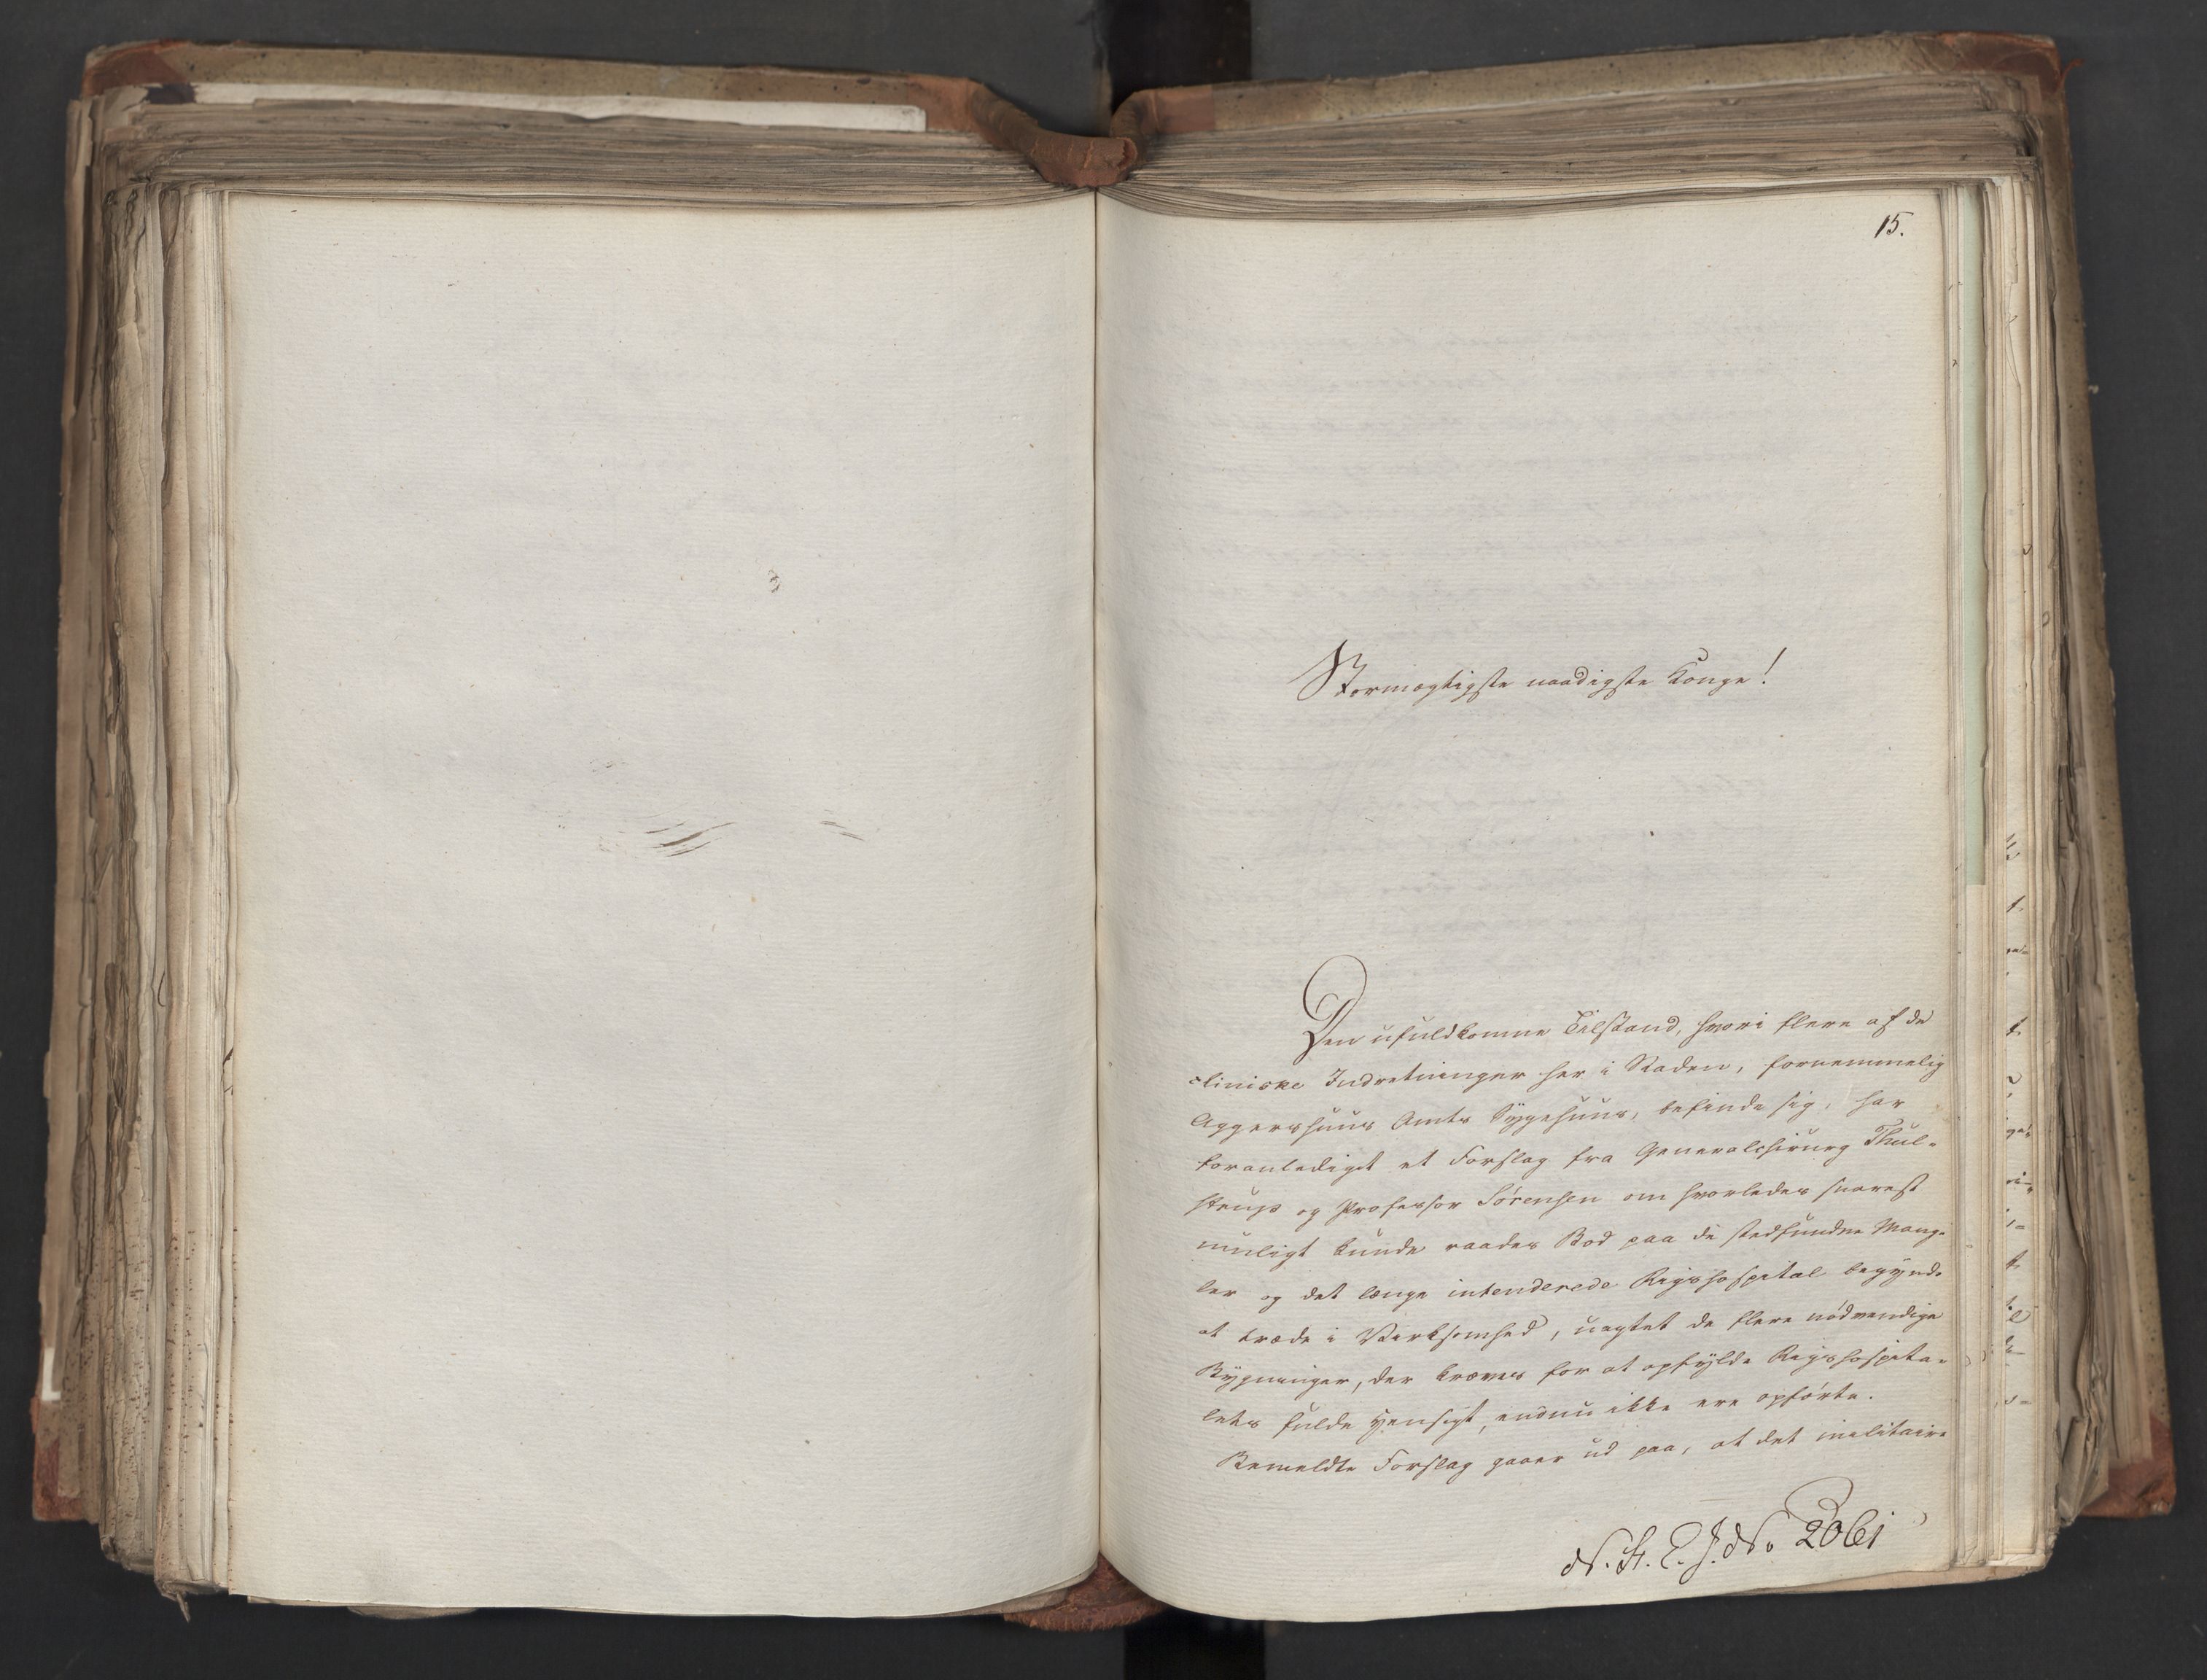 15.
Stormægtigste naadigste Konge!
Den ufuldkomne Tilstand, hvori flere af de
cliniske Indretninger her i Staden, fornemmelig
Aggershuus Amts Sygehuus, befinde sig, har
foranlediget et Forslag fra Generalchirurg Thul-
strup og Professor Sørensen om hvorledes snarest
muligt kunde raades Bod paa de stedfundne Mang-
ler og det længe intenderede Rigshospital begynde
at træde i Virksomhed, uagtet de flere nødvendige
Bygninger, der kræves for at opfylde Rigshospita-
lets fulde Hensigt, endnu ikke ere opførte.
Bemeldte Forslag gaaer ud paa, at det militaire
N. St. E. J. No 2061